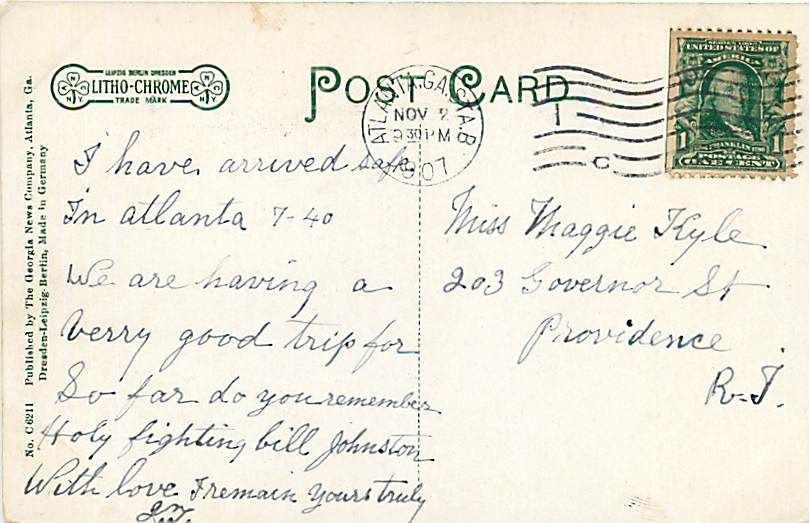 LEIPZIG BERLIN DRESDEN
LITHO-CHROME
TRADE MARK
POST CARD
ATLANTA, GA. STA. B.
NOV 2
930 PM
1907
1
C
SERIES 1902
UNITED STATES OF
AMERICA
1 FRANKLIN 1
POSTAGE
ONE CENT
No. C6211 Published by The Georgia News Company, Atlanta, Ga.
Dresden-Leipzig-Berlin, Made in Germany
I have arrived safe
In atlanta 7-40
We are having a
verry good trip for
So far do you remember
Holy fighting bill Johnston
With love I remain yours truly
Miss Maggie Kyle
203 Governor St
Providence
R.I.